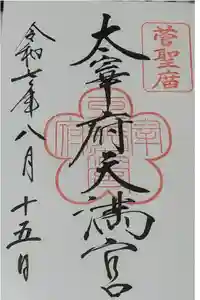 菅聖庿
太宰府天満宮
令和七年八月十五日